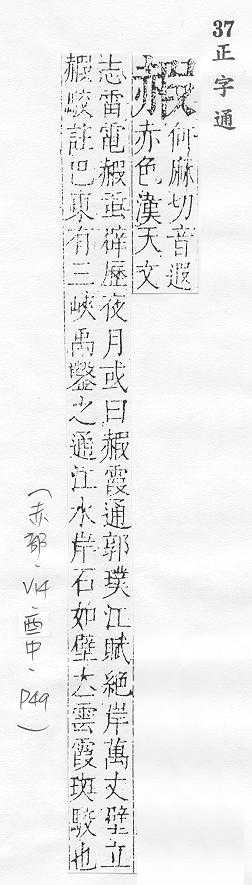 37 正字通
赮 何麻切音遐
赤色漢天文
志雷電赮辟歷夜月或曰赮霞通郭璞江賦絕岸萬丈壁立
赮駮註巴東有三峽禹鑿之通江水岸石如壁雲霞斑駮也
(赤部、V14、酉中、P49)